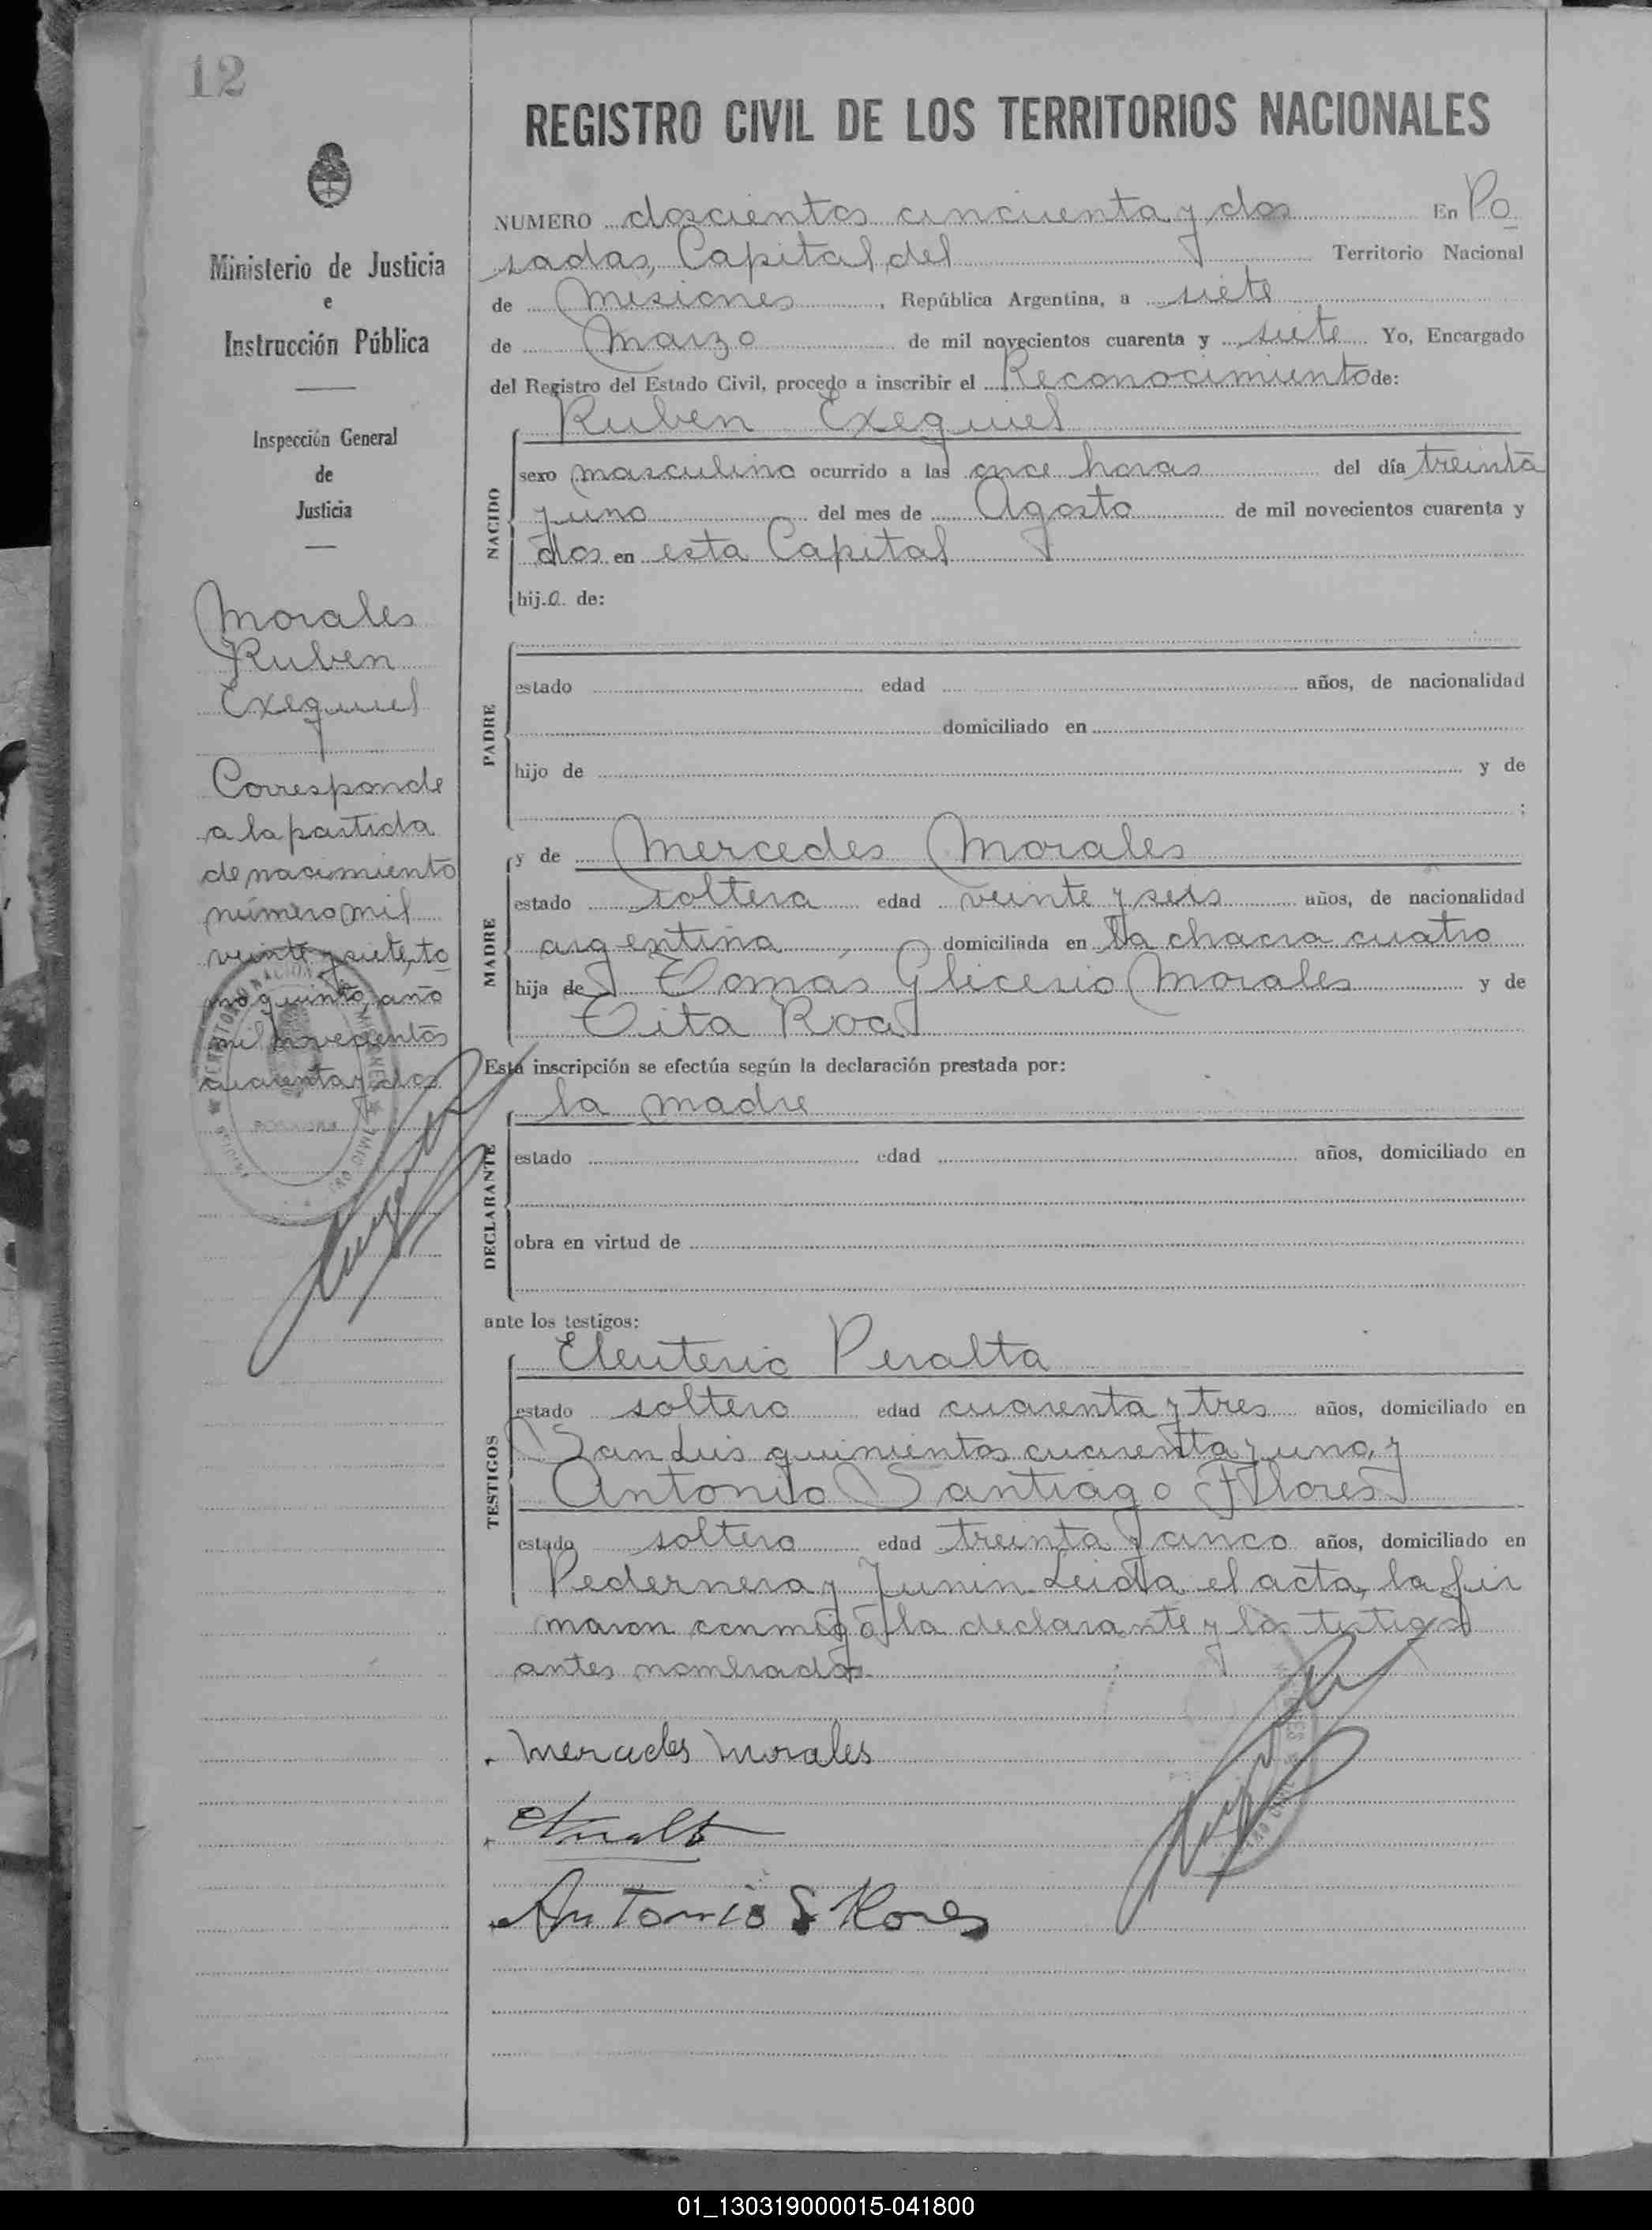 12
Ministerio de Justicia
e
Instrucción Pública
Inspección General
de
Justicia
Morales
Ruben
Exequiel
Corresponde
a la partida
de nacimiento
número mil
veinte y siete, to
mo quinto, año
mil novecientos
cuarenta y dos
REGISTRO CIVIL DE LOS TERRITORIOS NACIONALES
NUMERO doscientos cincuenta y dos En Po
sadas, Capital del Territorio Nacional
de Misiones, República Argentina, a siete
de Marzo de mil novecientos cuarenta y siete Yo, Encargado
del Registro del Estado Civil, procedo a inscribir el Reconocimiento de:
Ruben Exequiel
NACIDO
sexo masculino ocurrido a las once horas del día treinta
y uno del mes de Agosto de mil novecientos cuarenta y
dos en esta Capital
hij.o. de:
PADRE
estado edad años, de nacionalidad
domiciliado en
hijo de y de
;
MADRE
y de Mercedes Morales
estado soltera edad veinte y seis años, de nacionalidad
argentina domiciliada en la chacra cuatro
hija de Tomás Glicerio Morales y de
Tita Roa
Esta inscripción se efectúa según la declaración prestada por:
DECLARANTE
la madre
estado edad años, domiciliado en
obra en virtud de
ante los testigos:
TESTIGOS
Eleuterio Peralta
estado soltero edad cuarenta y tres años, domiciliado en
San Luis quinientos cuarenta y uno, y
Antonio Santiago Flores
estado soltero edad treinta y cinco años, domiciliado en
Pedernera y Junin. Leida el acta, la fir
maron conmigo la declarante y los testigos
antes nombrados.
Mercedes Morales
Antonio S Flores
01_130319000015-041800